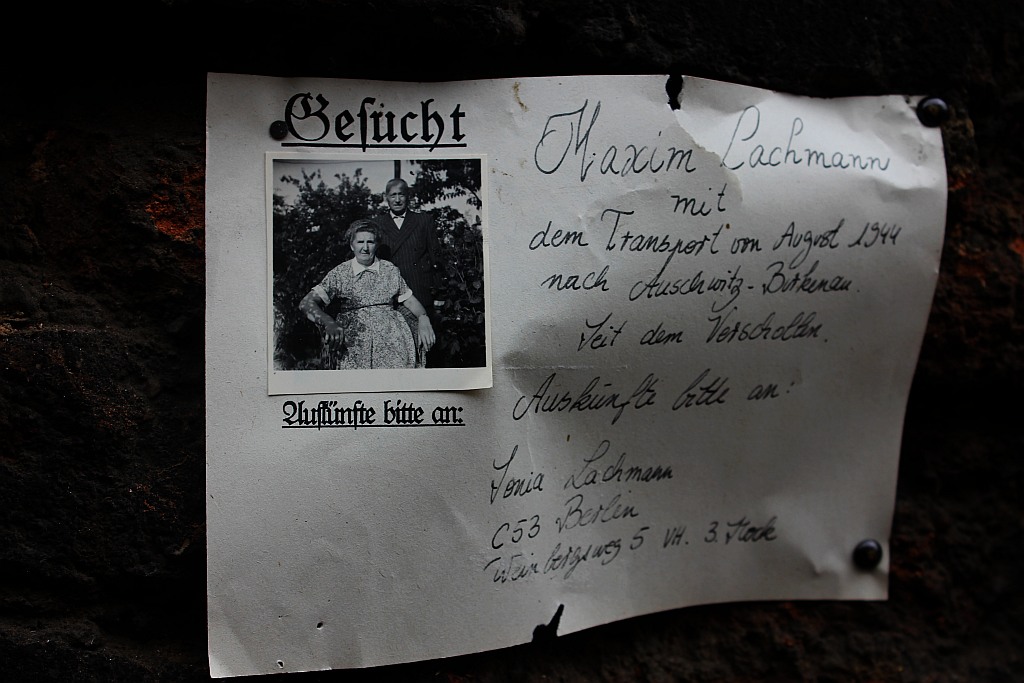 Gesucht
Auskünfte bitte an:
Maxim Lachmann
mit
dem Transport vom August 1944
nach Auschwitz-Birkenau.
Seit dem Verschollen.
Auskünfte bitte an:
Sonia Lachmann
C53 Berlin
Weinbergsweg 5 VH. 3. Stock